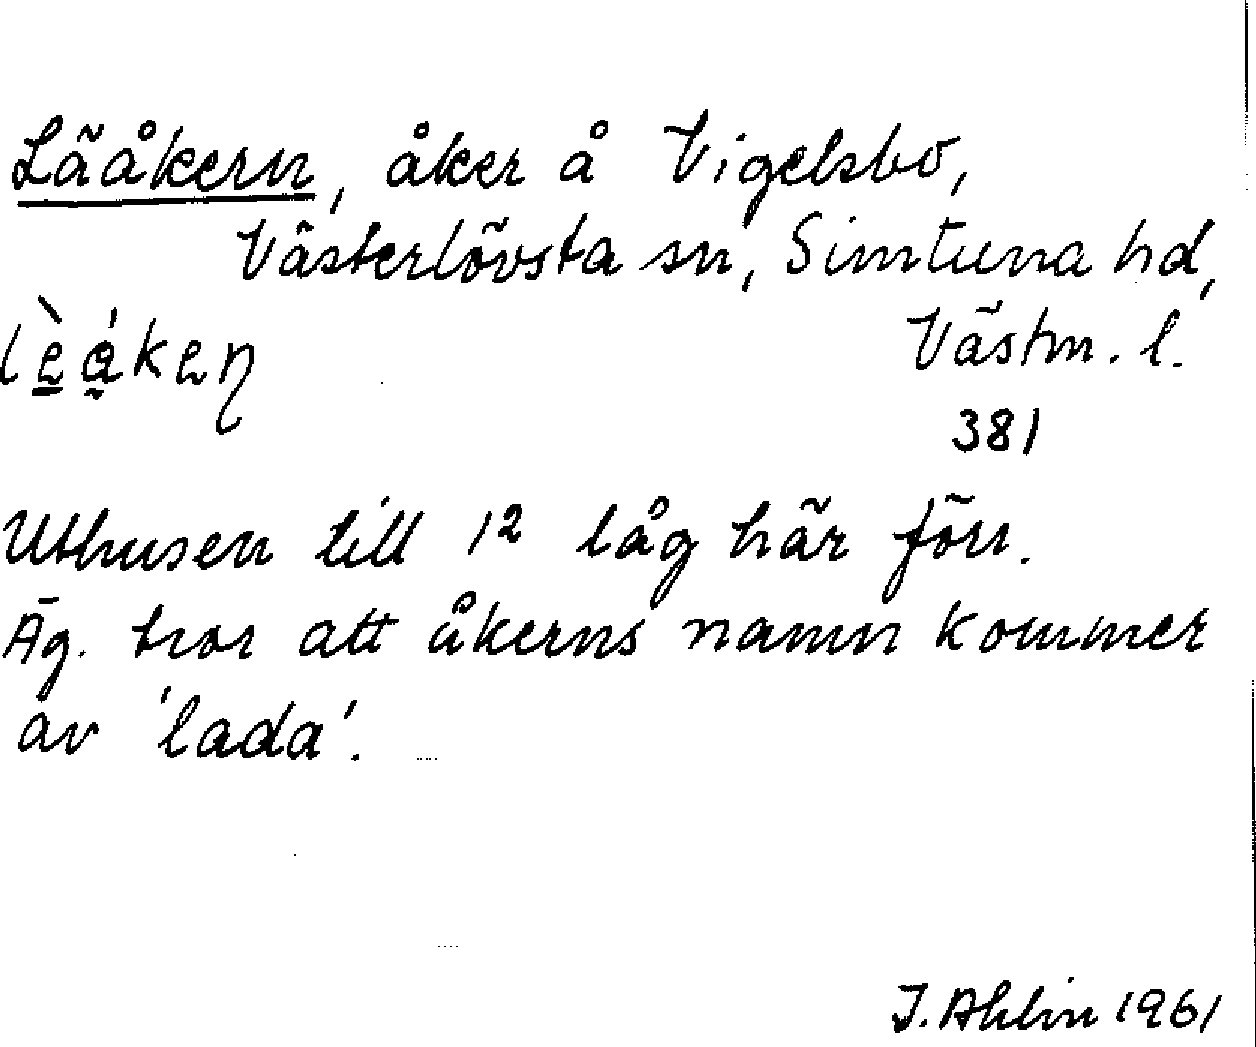 Lääkern, åker å Vigelsbo,
Västerlövsta sn, Simtuna hd,
Västm. l.
381
Uthusen till 1² låg här förr.
Äg. tror att åkerns namn kommer
av 'lada'.
J. Ahlin 1961